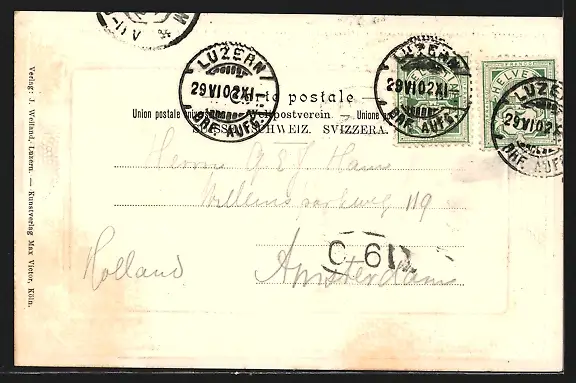 LUZERN
29 VI 02 XI-
BHF. AUFG.
LUZERN
29 VI 02 XI-
BHF. AUFG.
HELVETIA
FRANCO
LUZERN
29 VI 02 XI
BHF. AUFG.
Carte postale
Union postale universelle. — Weltpostverein. — Unione
SUISSE. SCHWEIZ. SVIZZERA.
Herrn G & J Haus
Willemsparkweg 119
Holland Amsterdam
C 61
Verlag: J. Weiland, Luzern. — Kunstverlag Max Victor, Köln.